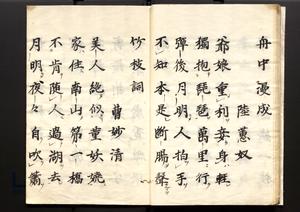 舟中漫成
陸蕙奴
爺娘重利妾身輕
獨抱琵琶萬里行
彈後月明人拍手
不知本是斷腸聲
竹枝詞
曹妙清
美人絕似董妖嬈
家住南山第一橋
不肯随人過湖去
月明夜々自吹簫